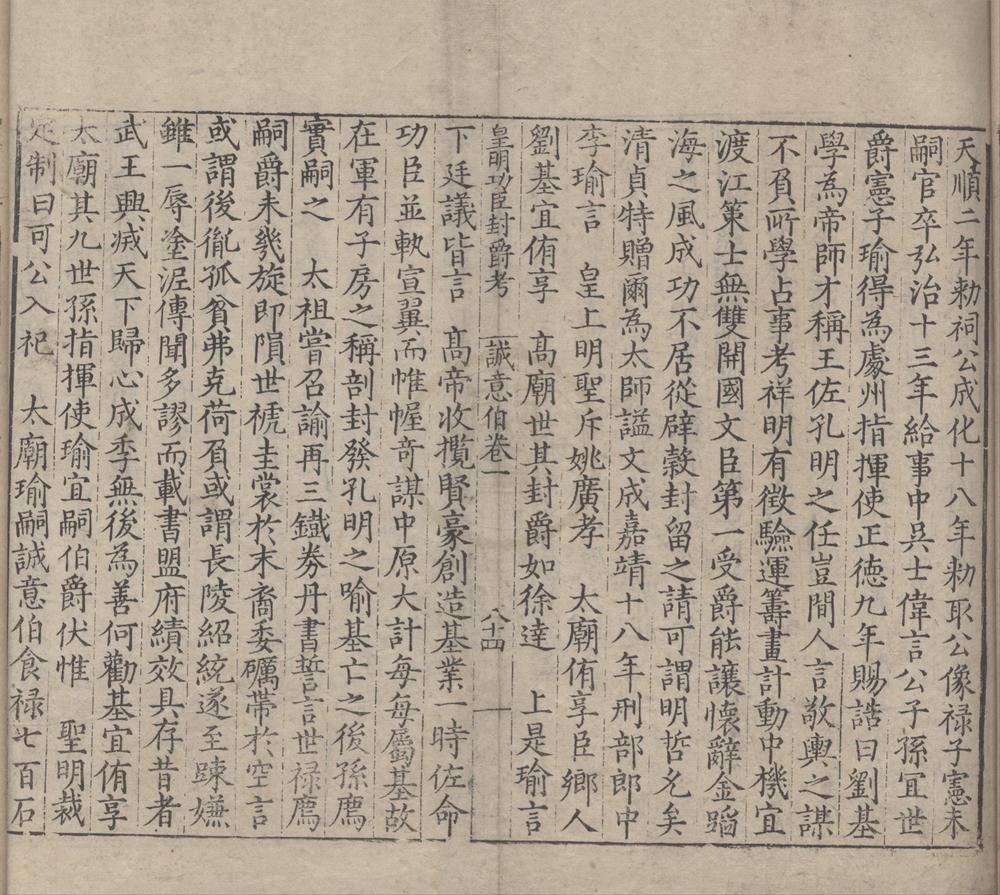 天順二年勅祠公成化十八年勅取公像禄子憲未
嗣官卒弘治十三年給事中吳士偉言公子孫冝世
爵憲子瑜得為處州指揮使正德九年賜誥曰劉基
學為帝師才稱王佐孔明之任豈間人言敬輿之謀
不負所學占事考祥明有徵驗運籌畫計動中機宜
渡江策士無雙開國文臣第一受爵能讓懷辭金蹈
海之風成功不居從辟穀封留之請可謂明哲允矣
清貞特贈爾為太師謚文成嘉靖十八年刑部郎中
李瑜言　皇上明聖斥姚廣孝　太廟侑享臣鄉人
劉基宜侑享　高廟世其封爵如徐達　上是瑜言
皇明功臣封爵考　誠意伯卷一　八十四
下廷議皆言　高帝收攬賢豪創造基業一時佐命
功臣並軌宣翼而帷幄奇謀中原大計每每屬基故
在軍有子房之稱剖封發孔明之喻基亡之後孫廌
實嗣之　太祖嘗召諭再三鐵券丹書誓言世禄廌
嗣爵未幾旋即隕世禠圭裳於末裔委礪帶於空言
或謂後胤孤貧弗克荷負或謂長陵紹統遂至踈嫌
雖一辱塗泥傳聞多謬而載書盟府績效具存昔者
武王興滅天下歸心成季無後為善何勸基宜侑享
太廟其九世孫指揮使瑜宜嗣伯爵伏惟　聖明裁
定制曰可公入祀　太廟瑜嗣誠意伯食禄七百石